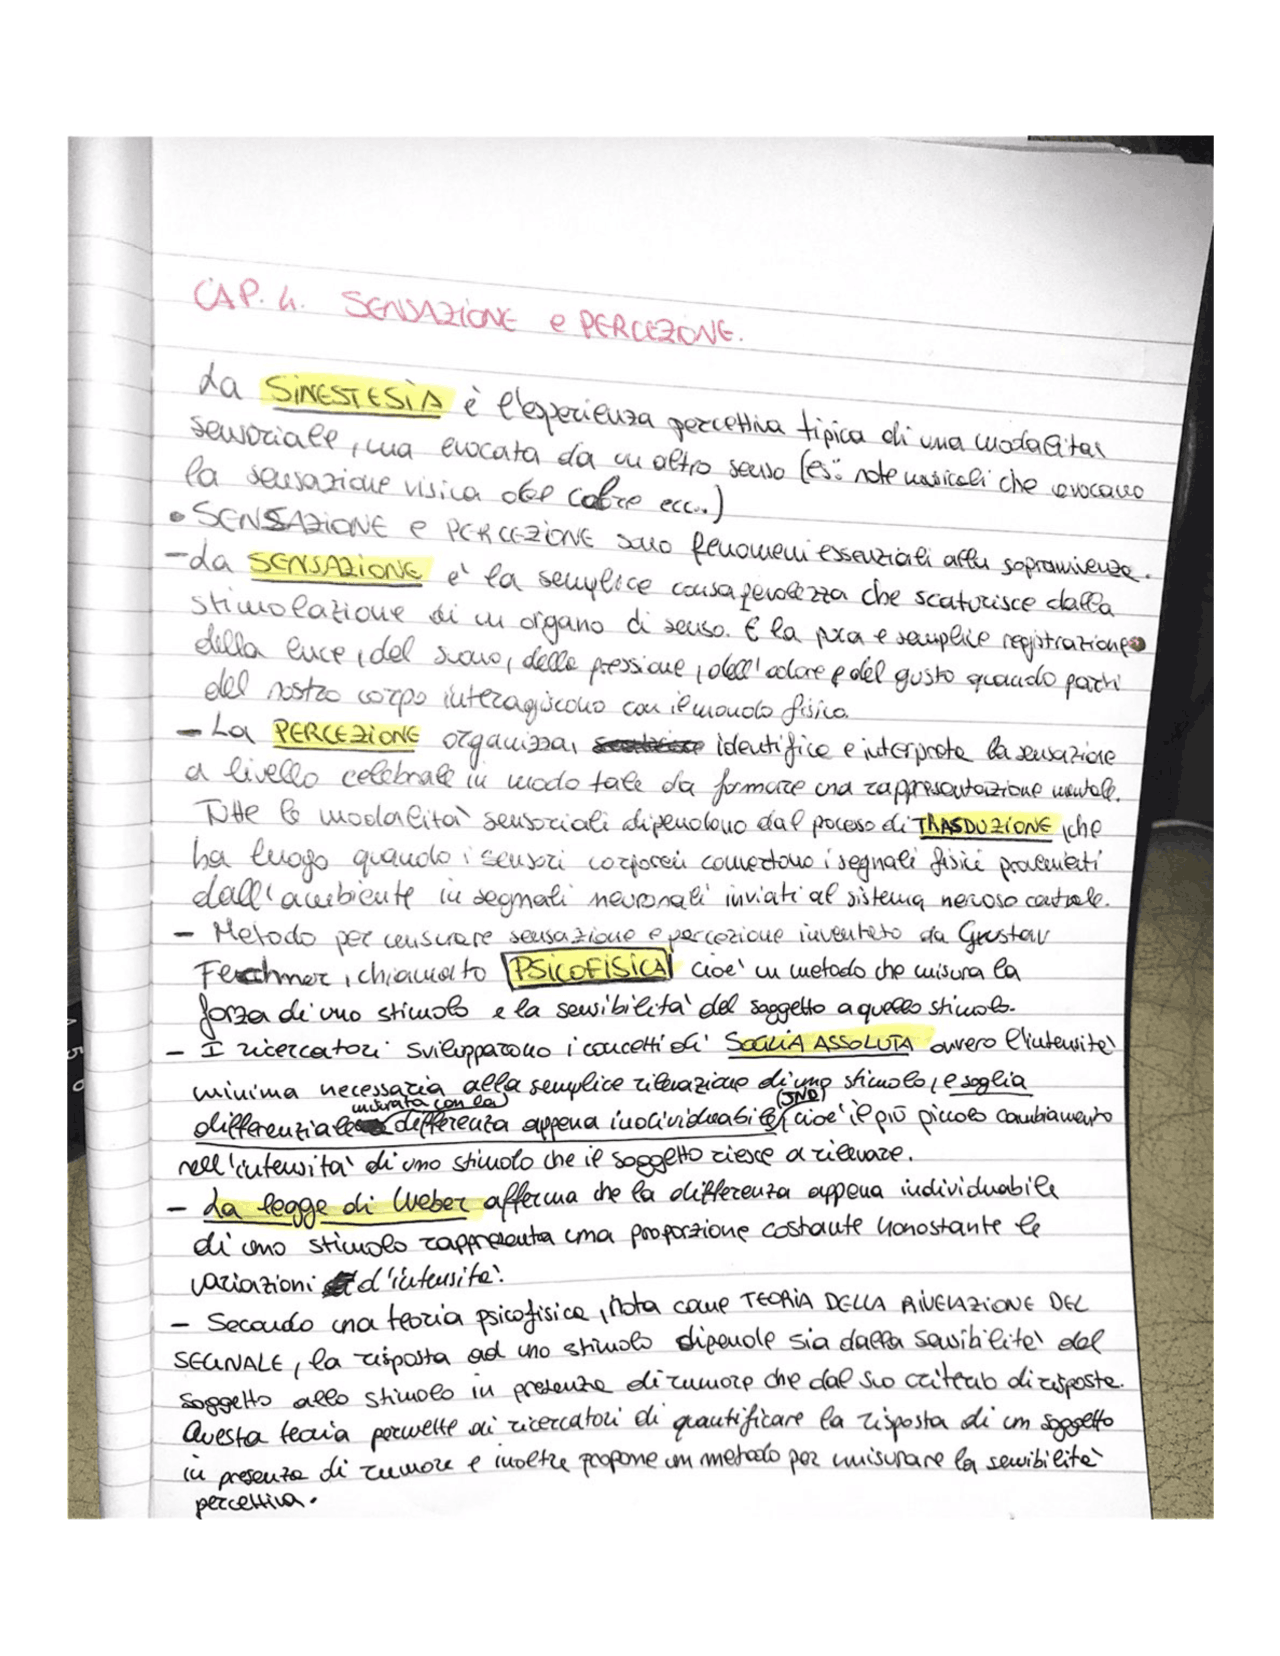 CAP. 4. SENSAZIONE e PERCEZIONE.
La SINESTESIA è l'esperienza percettiva tipica di una modalità
sensoriale, ma evocata da un altro senso (es: note musicali che evocano
la sensazione visiva del colore ecc..)
• SENSAZIONE e PERCEZIONE sono fenomeni essenziali alla sopravvivenza.
- La SENSAZIONE è la semplice consapevolezza che scaturisce dalla
stimolazione di un organo di senso. È la pura e semplice registrazione
della luce, del suono, della pressione, dell'odore e del gusto quando parti
del nostro corpo interagiscono con il mondo fisico.
- La PERCEZIONE organizza, identifica e interpreta la sensazione
a livello celebrale in modo tale da formare una rappresentazione mentale.
Tutte le modalità sensoriali dipendono dal process di TRASDUZIONE, che
ha luogo quando i sensori corporei convertono i segnali fisici provenienti
dall'ambiente in segnali neuronali inviati al sistema nervoso centrale.
- Metodo per misurare sensazione e percezione inventato da Gustav
Fechner, chiamato PSICOFISICA cioè un metodo che misura la
forza di uno stimolo e la sensibilità del soggetto a quello stimolo.
- I ricercatori svilupparono i concetti di SOGLIA ASSOLUTA ovvero l'intensità
minima necessaria alla semplice rilevazione di uno stimolo, e soglia
misurata con la (JND)
differenziale differenza appena individuabile, cioè il più piccolo cambiamento
nell'intensità di uno stimolo che il soggetto riesce a rilevare.
- La legge di Weber afferma che la differenza appena individuabile
di uno stimolo rappresenta una proporzione costante nonostante le
variazioni d'intensità.
- Secondo una teoria psicofisica, nota come TEORIA DELLA RIVELAZIONE DEL
SEGNALE, la risposta ad uno stimolo dipende sia dalla sensibilità del
soggetto allo stimolo in presenza di rumore che dal suo criterio di risposta.
Questa teoria permette ai ricercatori di quantificare la risposta di un soggetto
in presenza di rumore e inoltre propone un metodo per misurare la sensibilità
percettiva.